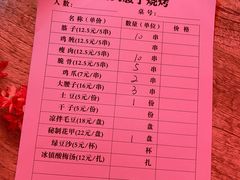 烧烤
人数： 桌号：
名称(单价) 数量(单位) 价格
筋子(12.5元/5串) 10 串
鸡 (12.5元/5串) 串
瘦肉(12.5元/5串) 10 串
脆骨(12.5元/5串) 5 串
鸡爪(7元/串) 2 串
大腰子(16元/串) 3 串
土豆(5元/份) 1 份
干子(5元/份) 份
凉拌毛豆(18元/盘) 盘
秘制花甲(22元/盘) 1 盘
绿豆沙(5元/杯) 杯
冰镇酸梅汤(12元/扎) 扎